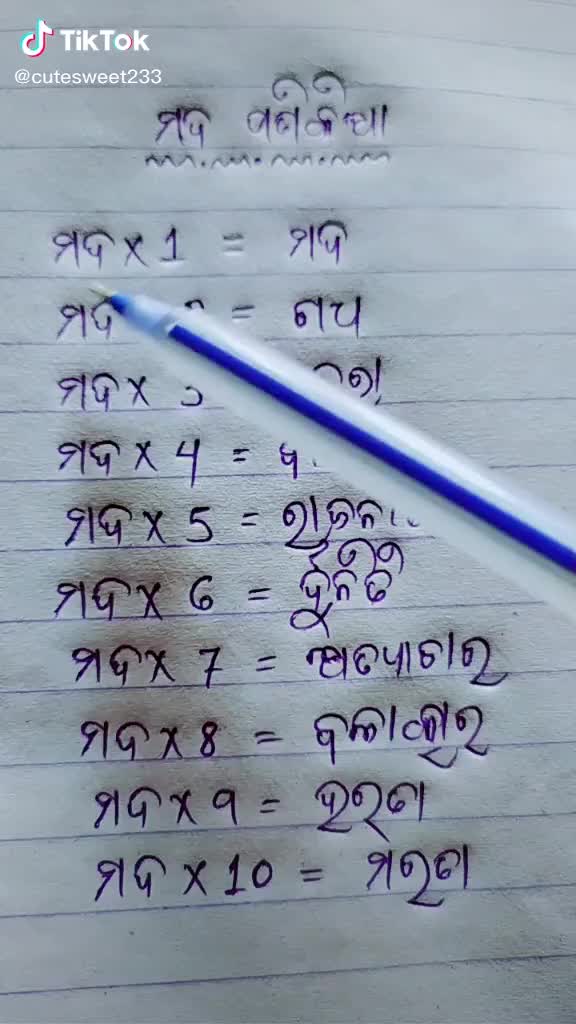 TikTok
@cutesweet233
ମଦ ପଣିକିଆ
ମଦ x 1 = ମଦ
ମଦ =  ଗପ
ମଦ x 3
ମଦ x 4 =
ମଦ x 5 =
ମଦ x 6 = ଦୁର୍ନିତି
ମଦ x 7 = ଅତ୍ୟାଚାର
ମଦ x 8 = ବଳାତ୍କାର
ମଦ x 9 = ହଇଚା
ମଦ x 10 = ମଇଚା